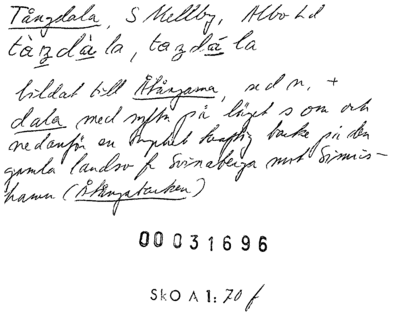 Tångdala, S Mellby, Albo hd
tàꞑdà la, taꞑdá la
bildat till Åtångarna, se d n, +
dala med syftn på läget s om och
nedanför en mycket kraftig backe på den
gamla landsv fr Svinaberga mot Simris-
hamn (Åtångabacken)
00031696
SkO A 1: 70 f